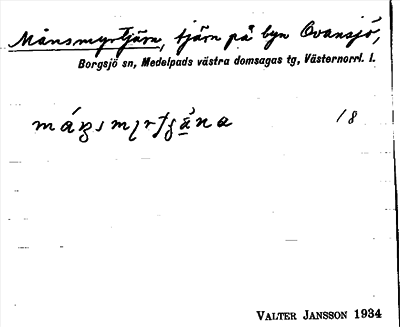 Månsmyrtjärn, tjärn på byn Ovansjö,
Borgsjö sn, Medelpads västra domsagas tg, Västernorrl. l.
18
VALTER JANSSON 1934